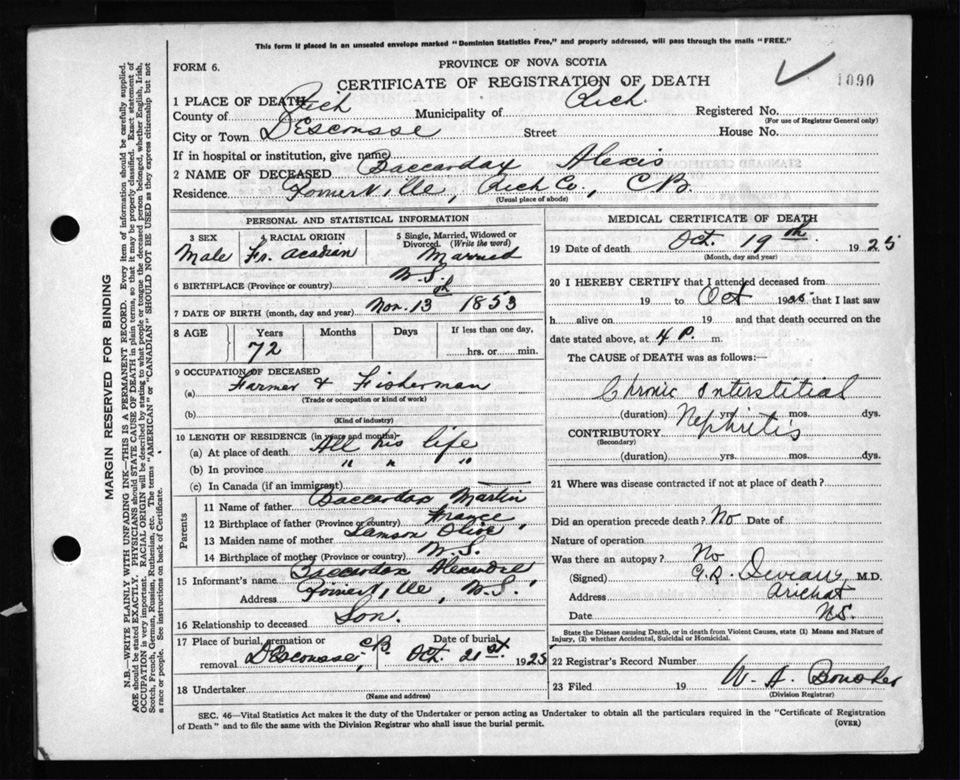 This form if placed in an unsealed envelope marked "Dominion Statistics Free," and properly addressed, will pass through the mails "FREE."
FORM 6.
PROVINCE OF NOVA SCOTIA
CERTIFICATE OF REGISTRATION OF DEATH
1090
1 PLACE OF DEATH
County of Rich Municipality of Rich Registered No.
(For use of Registrar General only)
City or Town D'Escousse Street House No.
If in hospital or institution, give name
2 NAME OF DECEASED Baccardax Alexis
Residence Poirierville, Rich Co., C.B.
(Usual place of abode)
PERSONAL AND STATISTICAL INFORMATION
3 SEX
Male
4 RACIAL ORIGIN
Fr. Acadian
5 Single, Married, Widowed or Divorced. (Write the word)
Married
6 BIRTHPLACE (Province or country) N.S.
7 DATE OF BIRTH (month, day and year) Nov. 13th 1853
8 AGE Years Months Days If less than one day,
72 hrs. or min.
9 OCCUPATION OF DECEASED
(a) Farmer & Fisherman
(Trade or occupation or kind of work)
(b)
(Kind of industry)
10 LENGTH OF RESIDENCE (in years and months)
(a) At place of death All his life
(b) In province " " "
(c) In Canada (if an immigrant)
Parents
11 Name of father Baccardax Martin
12 Birthplace of father (Province or country) France
13 Maiden name of mother Olive
14 Birthplace of mother (Province or country) N.S.
15 Informant's name Baccardax Alexandre
Address Poirierville, N.S.
16 Relationship to deceased Son.
17 Place of burial, cremation or removal D'Escousse, C.B. Date of burial Oct. 21st 1925
18 Undertaker
(Name and address)
MEDICAL CERTIFICATE OF DEATH
19 Date of death Oct. 19th 1925
(Month, day and year)
20 I HEREBY CERTIFY that I attended deceased from
19 to Oct 1925 that I last saw
h alive on 19 and that death occurred on
date stated above, at 4 P. m.
The CAUSE OF DEATH was as follows:—
Chronic Interstitial
(duration) yrs. mos. dys.
Nephritis
CONTRIBUTORY
(Secondary)
(duration) yrs. mos. dys.
21 Where was disease contracted if not at place of death?
Did an operation precede death? No Date of
Nature of operation
Was there an autopsy? No
(Signed) M.D.
Address Arichat
Date N.S.
State the Disease causing Death, or in death from Violent Causes, state (1) Means and Nature of Injury, (2) whether Accidental, Suicidal or Homicidal.
22 Registrar's Record Number
23 Filed 19 W. A.
(Division Registrar)
SEC. 46—Vital Statistics Act makes it the duty of the Undertaker or person acting as Undertaker to obtain all the particulars required in the "Certificate of Registration
of Death" and to file the same with the Division Registrar who shall issue the burial permit.
(OVER)
MARGIN RESERVED FOR BINDING
N.B.—WRITE PLAINLY WITH UNFADING INK—THIS IS A PERMANENT RECORD. Every item of information should be carefully supplied.
AGE should be stated EXACTLY. PHYSICIANS should STATE CAUSE OF DEATH in plain terms, so that it may be properly classified. Exact statement of
OCCUPATION is very important. RACIAL ORIGIN will be described by stating to what people or tongue the deceased person belonged, whether English, Irish,
Scotch, French, German, Russian, Ruthenian, etc. The terms "AMERICAN" or "CANADIAN" SHOULD NOT BE USED as they express citizenship but not
a race or people. See instructions on back of Certificate.